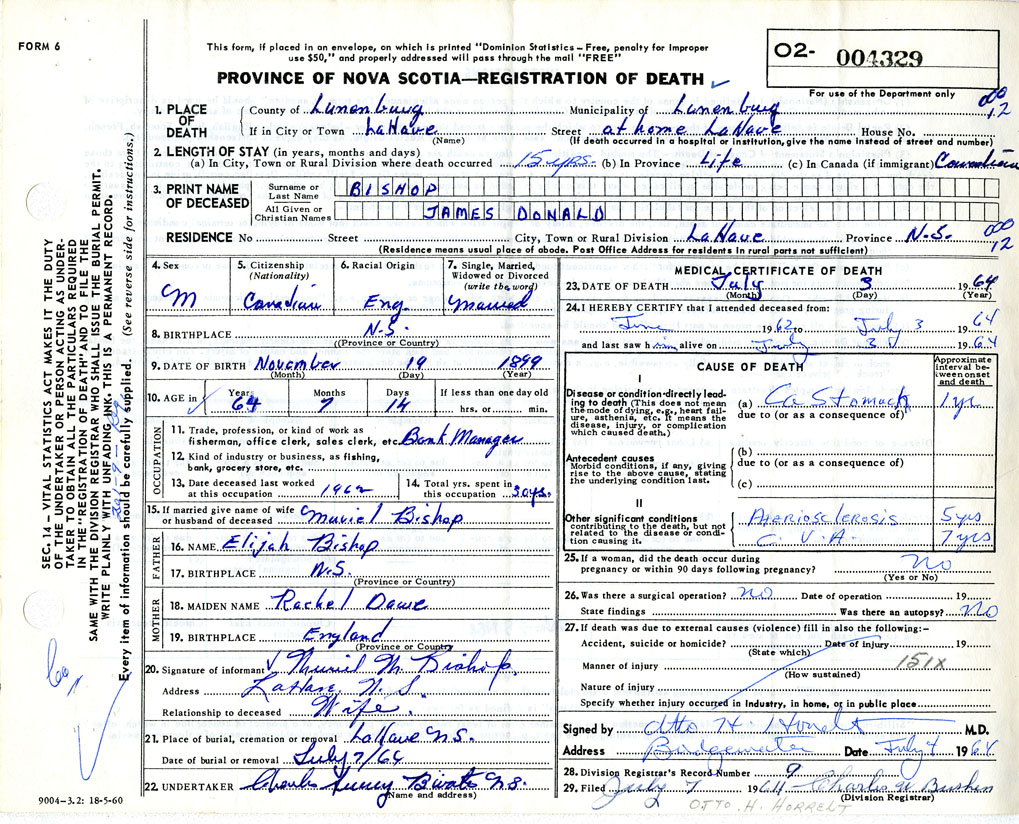 FORM 6
This form, if placed in an envelope, on which is printed "Dominion Statistics – Free, penalty for improper
use $50," and properly addressed will pass through the mail "FREE"
PROVINCE OF NOVA SCOTIA—REGISTRATION OF DEATH
O2- 004329
For use of the Department only
SEC. 14 – VITAL STATISTICS ACT MAKES IT THE DUTY
OF THE UNDERTAKER OR PERSON ACTING AS UNDER-
TAKER TO OBTAIN ALL THE PARTICULARS REQUIRED
IN THE "REGISTRATION OF DEATH" AND TO FILE THE
SAME WITH THE DIVISION REGISTRAR WHO SHALL ISSUE THE BURIAL PERMIT.
WRITE PLAINLY WITH UNFADING INK. THIS IS A PERMANENT RECORD.
Every item of information should be carefully supplied. (See reverse side for instructions.)
1. PLACE OF DEATH
County of Lunenburg Municipality of Lunenburg 000 12
If in City or Town LaHave Street at home LaHave House No.
(Name) (If death occurred in a hospital or institution, give name instead of street and number)
2. LENGTH OF STAY (in years, months and days)
(a) In City, Town or Rural Division where death occurred 15 yrs. (b) In Province Life (c) In Canada (if immigrant) Canadian
3. PRINT NAME OF DECEASED
Surname or Last Name BISHOP
All Given or Christian Names JAMES DONALD
RESIDENCE No Street City, Town or Rural Division LaHave Province N.S. 000 12
(Residence means usual place of abode. Post Office Address for residents in rural parts not sufficient)
4. Sex M
5. Citizenship (Nationality) Canadian
6. Racial Origin Eng.
7. Single, Married, Widowed or Divorced (write the word) Married
8. BIRTHPLACE N.S.
(Province or Country)
9. DATE OF BIRTH November 19 1899
(Month) (Day) (Year)
10. AGE in Years 64 Months 7 Days 14 If less than one day old hrs. or min.
OCCUPATION
11. Trade, profession, or kind of work as
fisherman, office clerk, sales clerk, etc. Bank Manager
12. Kind of industry or business, as fishing,
bank, grocery store, etc.
13. Date deceased last worked at this occupation 1962
14. Total yrs. spent in this occupation 30 yrs.
15. If married give name of wife or husband of deceased Muriel Bishop
FATHER
16. NAME Elijah Bishop
17. BIRTHPLACE N.S.
(Province or Country)
MOTHER
18. MAIDEN NAME Rachel Dawe
19. BIRTHPLACE England
(Province or Country)
20. Signature of informant Muriel M. Bishop
Address LaHave, N.S.
Relationship to deceased Wife.
21. Place of burial, cremation or removal LaHave N.S.
Date of burial or removal July 7/64
22. UNDERTAKER Charles N.S.
(Name and address)
9004—3.2: 18-5-60
MEDICAL CERTIFICATE OF DEATH
23. DATE OF DEATH July 3 1964
(Month) (Day) (Year)
24. I HEREBY CERTIFY that I attended deceased from:
June 1962 to July 3 1964
and last saw him alive on July 3 1964
CAUSE OF DEATH
Approximate interval between onset and death
I
Disease or condition directly leading to death (This does not mean the mode of dying, e.g., heart failure, asthenia, etc. It means the disease, injury, or complication which caused death.)
(a) Ca Stomach 1 yr
due to (or as a consequence of)
Antecedent causes
Morbid conditions, if any, giving rise to the above cause, stating the underlying condition last.
(b)
due to (or as a consequence of)
(c)
II
Other significant conditions contributing to the death, but not related to the disease or condition causing it.
Arteriosclerosis 5 yrs
C.V.A. 7 yrs
25. If a woman, did the death occur during
pregnancy or within 90 days following pregnancy? No
(Yes or No)
26. Was there a surgical operation? No Date of operation 19
State findings Was there an autopsy? No
27. If death was due to external causes (violence) fill in also the following:–
Accident, suicide or homicide? Date of injury 19
(State which)
Manner of injury 151X
(How sustained)
Nature of injury
Specify whether injury occurred in Industry, in home, or in public place
Signed by Otto H. Horrelt M.D.
Address Bridgewater Date July 4 1964
28. Division Registrar's Record Number 9
29. Filed July 7 1964 Charles W.
(Division Registrar)
OTTO H. HORRELT